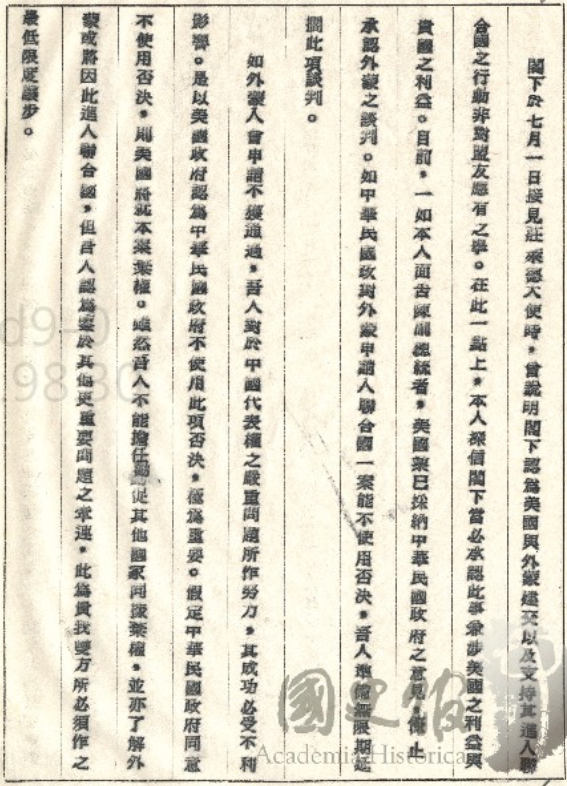 閣下於七月一日接見莊萊德大使時，曾說明閣下認為美國與外蒙建交以及支持其進入聯
合國之行動非對盟友應有之舉。在此一點上，本人深信閣下當必承認此事兼涉美國之利益與
貴國之利益。目前，一如本人面告陳副總統者，美國業已採納中華民國政府之意見，停止
承認外蒙之談判。如中華民國政對外蒙申請入聯合國一案能不使用否決，吾人準備無限期延
擱此項談判。
如外蒙入會申請不獲通過，吾人對於中國代表權之嚴重問題所作努力，其成功必受不利
影響。是以美國政府認為中華民國政府不使用此項否決，極為重要。假定中華民國政府同意
不使用否決，則美國將就本案棄權。雖然吾人不能擔任勸促其他國家同樣棄權，並亦了解外
蒙或將因此進入聯合國，但吾人認為鑒於其他更重要問題之牽連，此為貴我雙方所必須作之
最低限度讓步。
國史館
Academia Historica